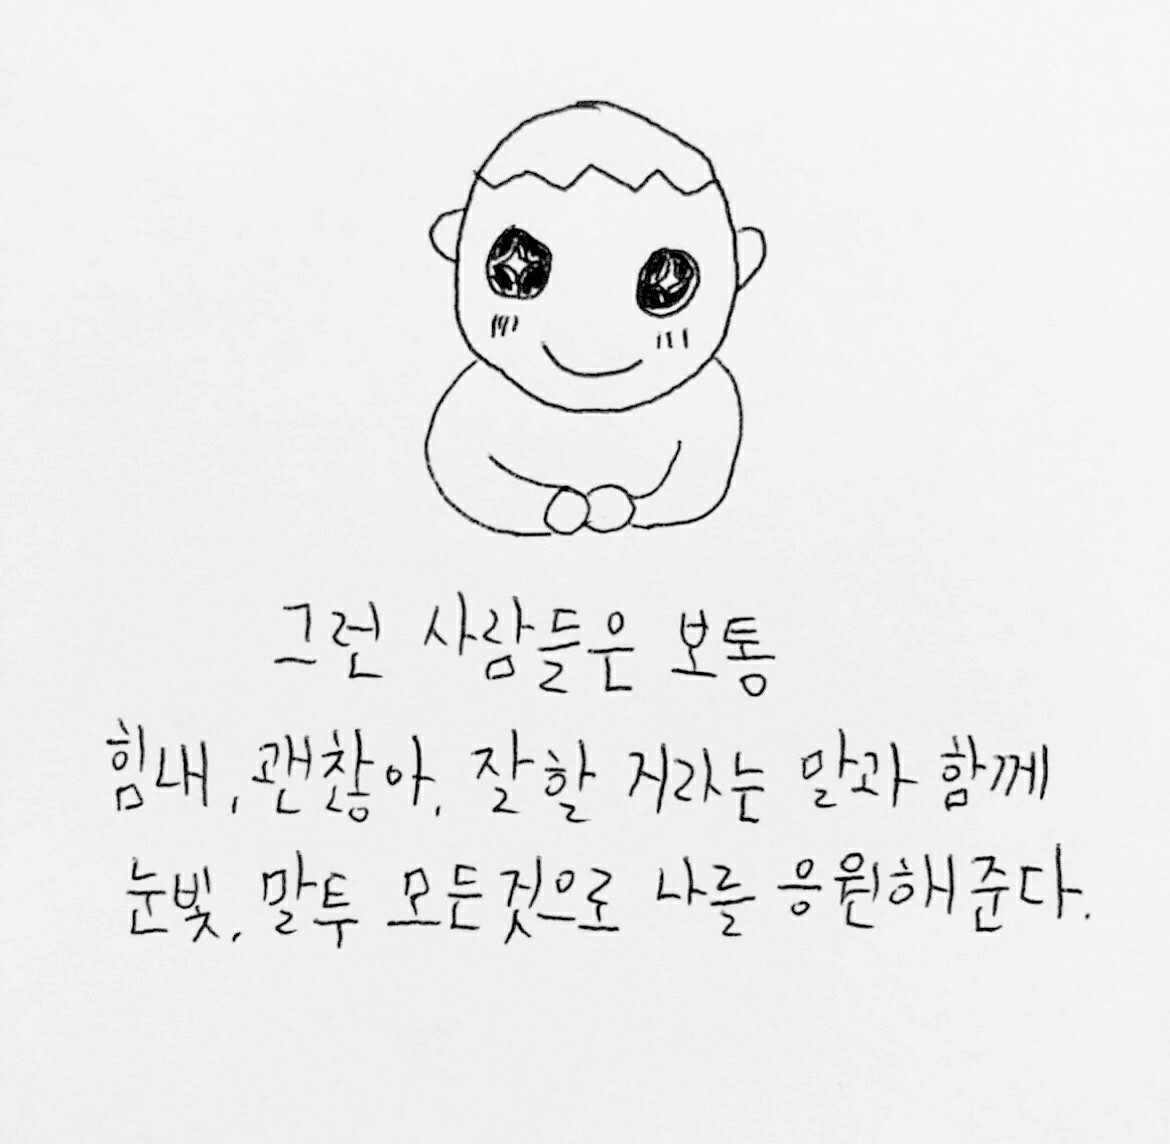 그런 사람들은 보통
힘내, 괜찮아, 잘할 거라는 말과 함께
눈빛, 말투 모든것으로 나를 응원해준다.